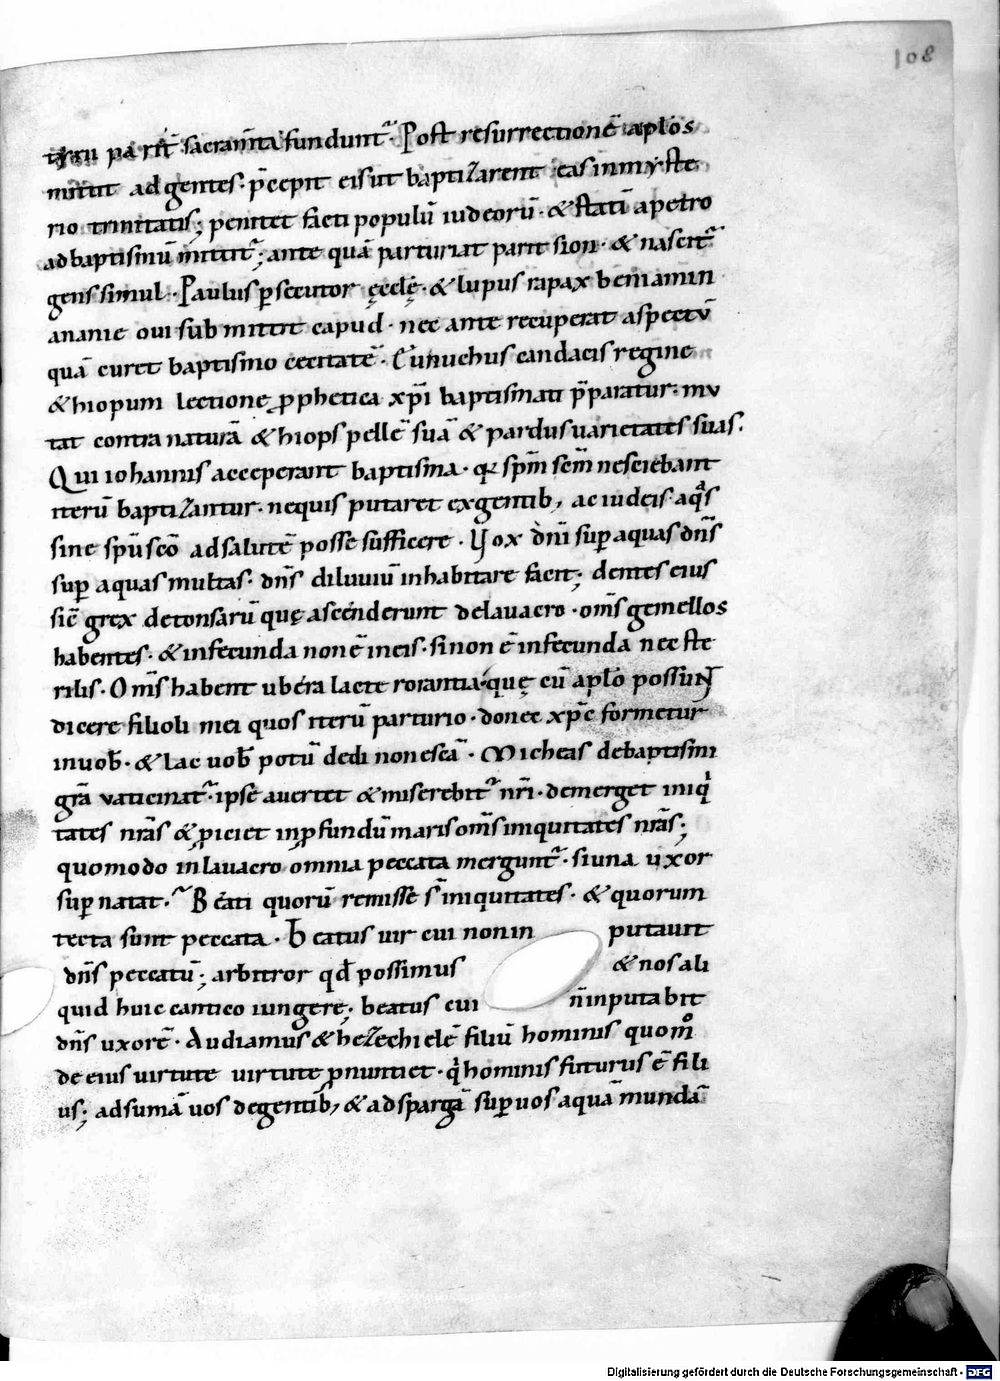 108
tyrii parit̄ sacram̄ta fundunt᷑. Post resurrectionē aplōs
mittit ad gentes. p̄cepit eis ut baptizarent eas in myste
rio trinitatis; penitet facti populū iudeorū. & statī a petro
ad baptismū mittit᷑; ante quā parturiat parit sion. & nascit᷑
gens simul. Paulus ꝑsecutor ęcclę. & lupus rapax beniamin
ananie oui submittit capud. nec ante recuperat aspectū
quā curet baptismo cecitatē. Eunuchus candacis regine
&hiopum lectione ꝓphetica xp̄i baptismati p̄paratur. mu
tat contra naturā &hiops pellē suā & pardus uarietates suas.
Qui iohannis acceperant baptisma. qꝛ sp̄m sc̄m nesciebant
iterū baptizantur. nequis putaret ex gentib; ac iudeis aqͣs
sine sp̄u sc̄o ad salutē posse sufficere. Uox dn̄i suꝑ aquas dn̄s
suꝑ aquas multas. dn̄s diluuiū inhabitare facit; dentes eius
sic̄ grex detonsarū quę ascenderunt de lauacro. om̄s gemellos
habentes. & infecunda non ē in eis. si non ē infecunda nec ste
rilis. Om̄s habent ubera lacte rorantia. quę cū aplo̅ possunt
dicere filioli mei quos iterū parturio. donec xp̄c formetur
in uob̄. & lac uob̄ potū dedi non escā. Micheas de baptismi
grā vaticinat᷑. ipse auertet & miserebit᷑ nr̄i. demerget iniqⁱ
tates nrās & ꝓiciet in ꝓfundū maris om̄s iniquitates nrās;
quomodo in lauacro omnia peccata mergunt᷑. si una uxor
suꝑnatat. Beati quorū remisse s̄ iniquitates. & quorum
tecta sunt peccata. Beatus uir cui non in putauit
dn̄s peccatū; arbitror qd̄ possimus & nos ali
quid huic cantico iungere; beatus cui n̄ inputabit
dn̄s uxorē. Audiamus & hezechielē filiū hominis quomͦ
de eius uirtute uirtute ꝓnuntiet. qⁱ hominis futurus ē fili
us; adsumā uos de gentib; & adspargā suꝑ uos aquā mundā
Digitalisierung gefördert durch die Deutsche Forschungsgemeinschaft - DFG